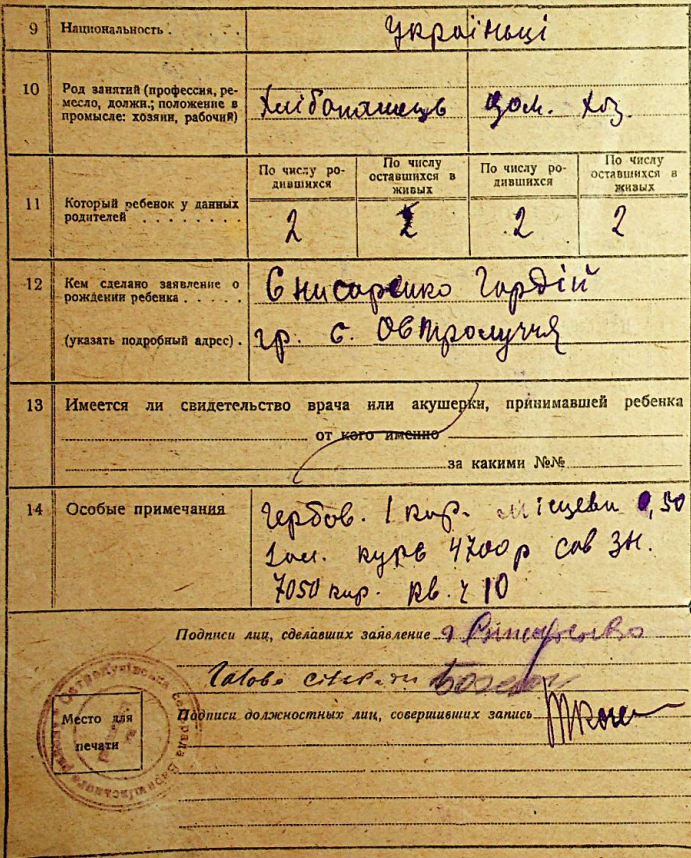 9 Национальность . . . . . Українці
10 Род занятий (профессия, ре-
месло, должн.; положение в
промысле: хозяин, рабочий) Хлібопашець дом. хоз.
По числу ро-
дившихся По числу
оставшихся в
живых По числу ро-
дившихся По числу
оставшихся в
живых
11 Который ребенок у данных
родителей . . . . . . . . 2 2 2 2
12 Кем сделано заявление о
рождении ребенка . . . . . Єнисаренко Гордій
(указать подробный адрес) . гр. с. Остролуччя
13 Имеется ли свидетельство врача или акушерки, принимавшей ребенка
от кого именно
за какими №№
14 Особые примечания Гербов. 1 кар. місцеви 0,50
курс 4700 р сов зн.
7050 кар. кв. ч 10
Подписи лиц, сделавших заявление
Голова сільради
Подписи должностных лиц, совершивших запись
Место для
печати